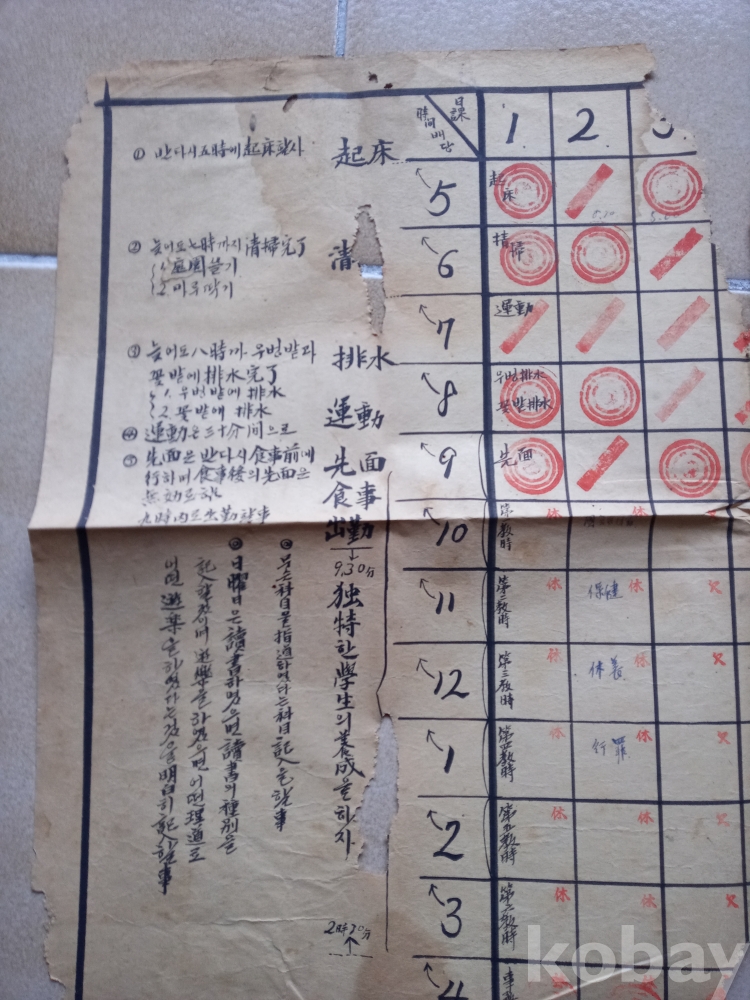 ① 반다시 五時에 起床할사
② 늦어도 七時까지 清掃完了
1. 庭園쓸기
2. 마루딱기
③ 늦어도 八時까 우벙밭과
꽃밭에 排水完了
1. 우벙밭에 排水
2. 꽃밭애 排水
④ 運動은 三十分間으로
⑤ 先面은 반다시 食事前에
行하며 食事後의 先面은
無効로 함
九時內로 出勤할事
起床
清
排水
運動
先面
食事
出勤
9.30分
独特한 學生의 養成을 하자
⑥ 무슨 科目을 指導하였다는 科目 記入을 할事
日曜日은 讀書하였으면 讀書의 種別을
記入할것이며 遊樂을 하였으면 어떤 理道로
어떤 遊樂을 하였다는것을 明白히 記入할事
2時30分
日課
時間배당
1. 2. 3
5 起床
6 掃
7 運動
8 우벙排水
꽃밭排水
9 先面
10 第一教時 休 休
11 第二教時 休 保健 休 欠
12 第三教時 休 休養 休 欠
1 第四教時 休 休 欠
2 第五教時 休 休 欠
3 第六教時 休 休 欠
4
kobay